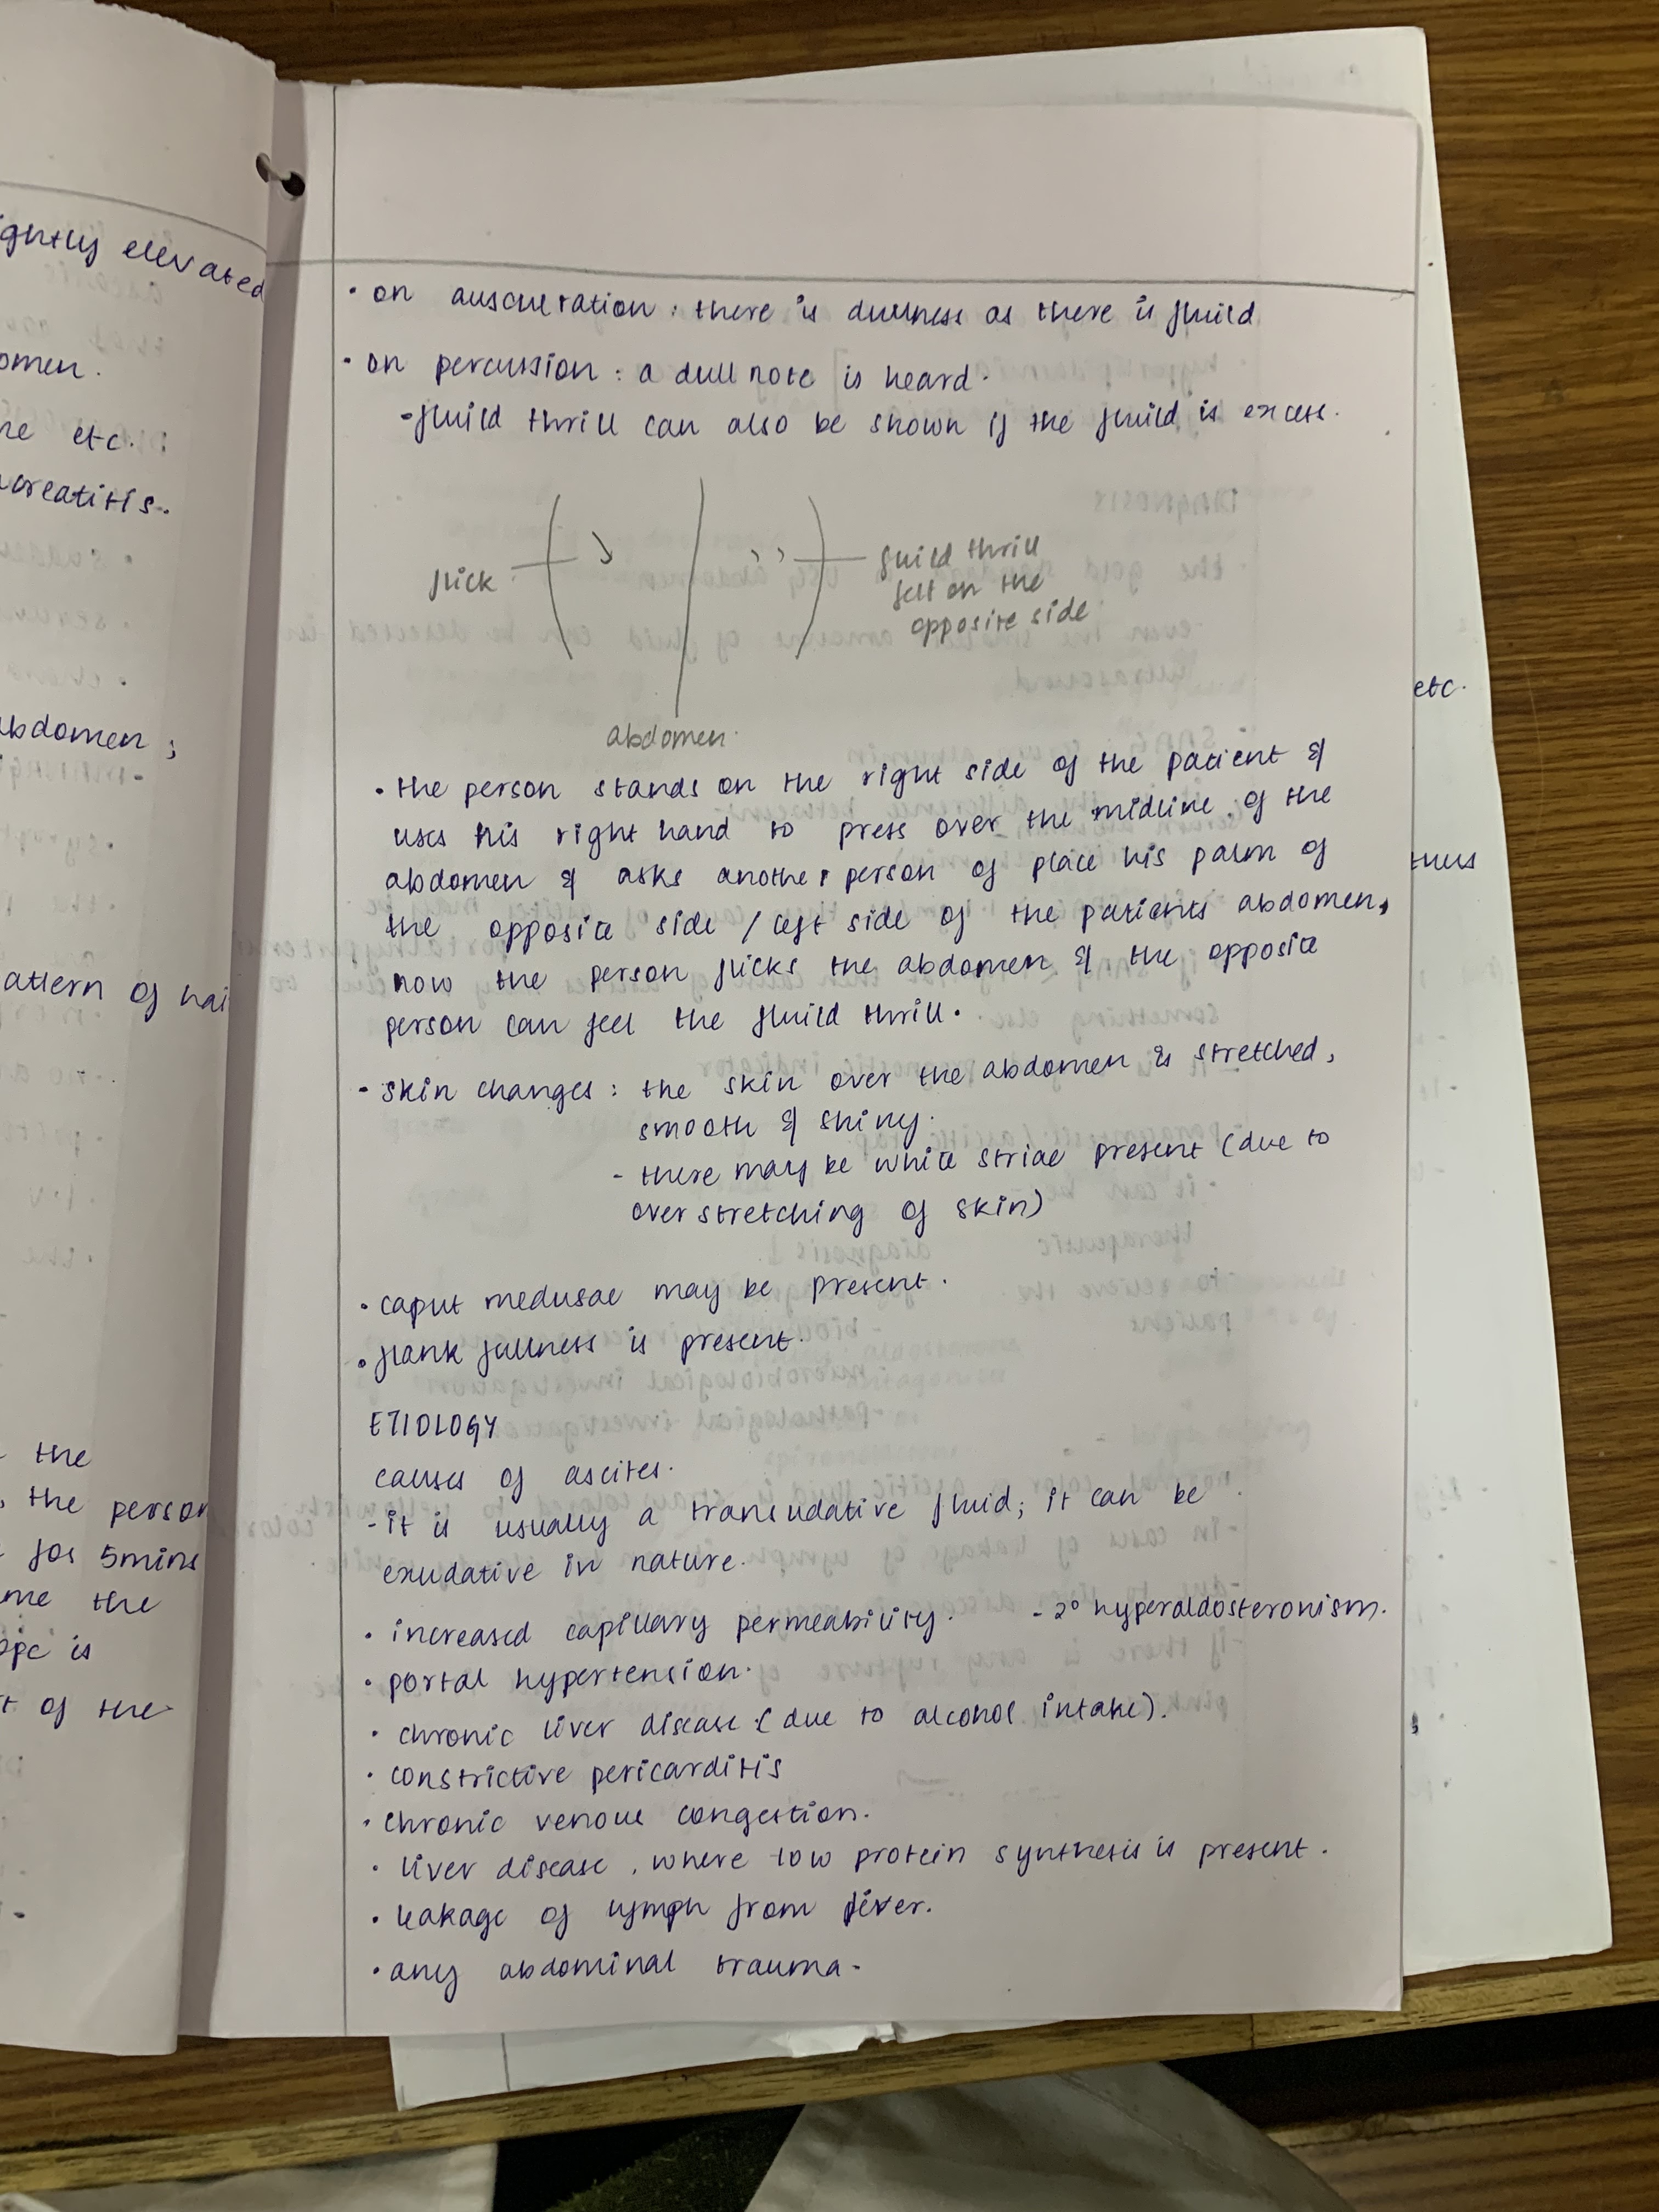 ightly elevated
omen.
ne etc.
creatitis.
abdomen ;
attern of hai
the
, the person
for 5mins
me the
ppc is
t of the
• on auscultation : there is dullness as there is fluid
• on percussion : a dull note is heard.
- fluid thrill can also be shown if the fluid is excess.
flick
fluid thrill
felt on the
opposite side
abdomen.
• the person stands on the right side of the patient &
uses his right hand to press over the midline of the
abdomen & asks another person of place his palm of
the opposite side / left side of the patients abdomen,
now the person flicks the abdomen & the opposite
person can feel the fluid thrill.
- skin changes : the skin over the abdomen is stretched,
smooth & shiny.
- there may be white striae present (due to
over stretching of skin)
• caput medusae may be present.
• flank fullness is present.
ETIOLOGY
causes of ascites.
- it is usually a transudative fluid; it can be
exudative in nature.
• increased capillary permeability. - 2° hyperaldosteronism.
• portal hypertension.
• chronic liver disease (due to alcohol intake).
• constrictive pericarditis
• chronic venous congestion.
• liver disease, where low protein synthesis is present.
• leakage of lymph from liver.
• any abdominal trauma.
etc.
thus